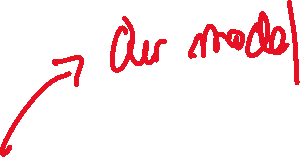 Our model